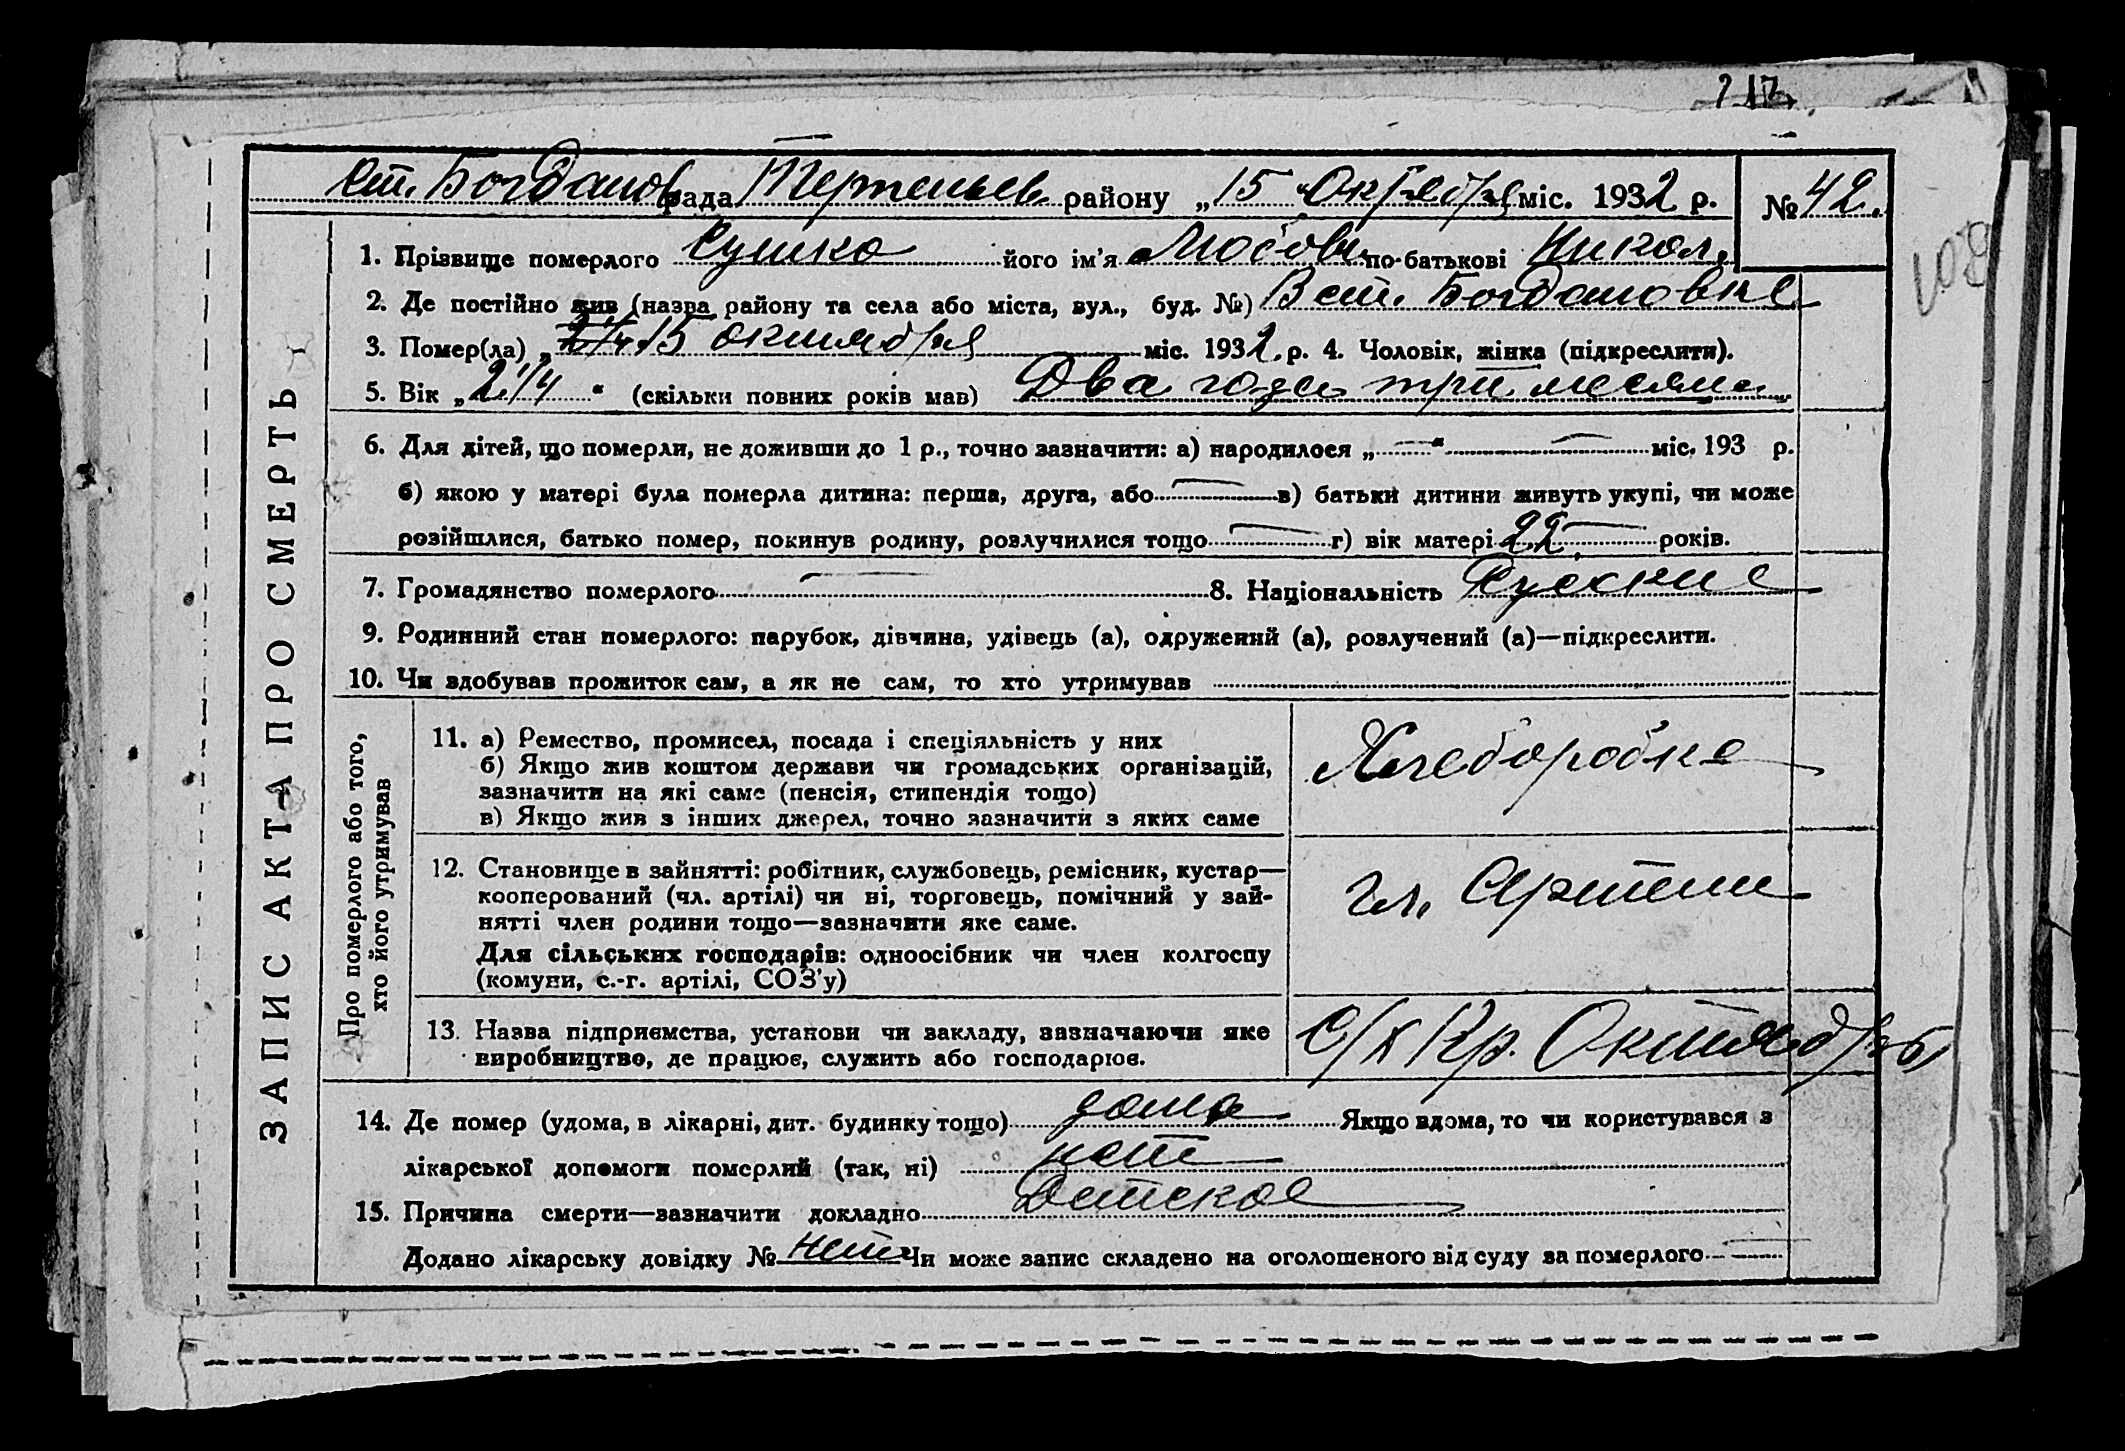 212
ст. Богданов рада Терпеньев району „15" Октября міс. 1932 р. № 42.
108
1. Прізвище померлого Сушко його ім'я Любовь по-батькові Никол.
2. Де постійно жив (назва району та села або міста, вул., буд. №) В ст. Богдановке
3. Помер(ла) „ 2 1/4 15 октября міс. 1932 р. 4. Чоловік, жінка (підкреслити).
5. Вік „2 1/4" (скільки повних років мав) Два года три месяца
6. Для дітей, що померли, не доживши до 1 р., точно зазначити: а) народилося „—" — міс. 193 р.
б) якою у матері була померла дитина: перша, друга, або — в) батьки дитини живуть укупі, чи може
розійшлися, батько помер, покинув родину, розлучилися тощо — г) вік матері 22 років.
7. Громадянство померлого — 8. Національність Руские
9. Родинний стан померлого: парубок, дівчина, удівець (а), одружений (а), розлучений (а)—підкреслити.
10. Чи здобував прожиток сам, а як не сам, то хто утримував
ЗАПИС АКТА ПРО СМЕРТЬ
Про померлого або того,
хто його утримував
11. а) Ремество, промисел, посада і спеціяльність у них
б) Якщо жив коштом держави чи громадських організацій,
зазначити на які саме (пенсія, стипендія тощо)
в) Якщо жив з інших джерел, точно зазначити з яких саме
Хлеборобка
12. Становище в зайнятті: робітник, службовець, ремісник, кустар—
кооперований (чл. артілі) чи ні, торговець, помічний у зай-
нятті член родини тощо—зазначити яке саме.
Для сільських господарів: одноосібник чи член колгоспу
(комуни, с.-г. артілі, СОЗ'у)
чл. Артели
13. Назва підприємства, установи чи закладу, зазначаючи яке
виробництво, де працює, служить або господарює.
С/х Кр. Октябрь
14. Де помер (удома, в лікарні, дит. будинку тощо) дома Якщо вдома, то чи користувався з
лікарської допомоги померлий (так, ні) нет
15. Причина смерти—зазначити докладно Детское
Додано лікарську довідку № нет Чи може запис складено на оголошеного від суду за померлого —